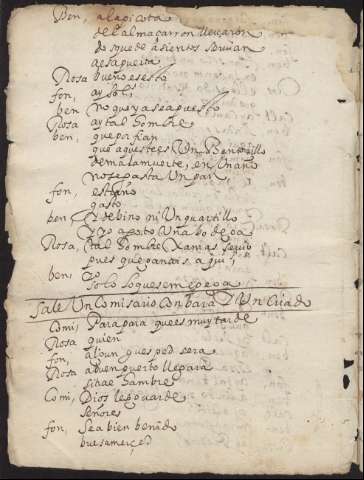 Ben, alapicota
del almaçarron lleuaron
do sque de asientos seruian
Rosa bueno es esto
fon, ay sal
ben no que ya se a puesto
Rosa ay tal hombre
ben, que porfian
que aquestees Un
de mala muerte, en Un año
no se gasta Un par
fon, estraño
gasto
ben Y de bino ni Un quartillo
y yo
Rosa, tal hombre Xamas
pues que ganais aqui,
ben yo
solo lo que se me pega
Sale Un Comisario Con bara Y Un Criado
Comi, Para para que es muy tarde
Rosa quien
fon, algun guesped sera
Rosa a buen puerto llegara
si trae hambre
Comi, Dios les guarde
señores
fon, Sea bien benido
buesa merçed